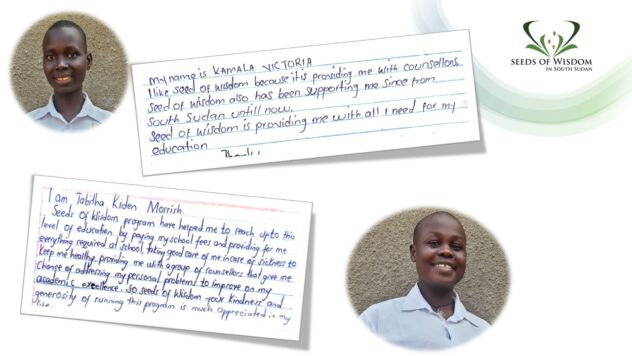 my name is KAMALA VICTORIA
I like seed of wisdom because it is providing me with counsellors
seed of wisdom also has been supporting me since from
south Sudan untill now.
seed of wisdom is providing me with all I need for my
education
SEEDS OF WISDOM
IN SOUTH SUDAN
I am Tabitha Kiden Morrish.
Seeds of Wisdom program have helped me to reach upto this
level of education by paying my school fees and providing for me
everything required at school, taking good care of me in case of sickness to
keep me healthy, providing me with a group of counsellors that give me
change of addressing my personal problems to improve on my
academic excellence. So seeds of Wisdom your kindness and
generosity of running this program is much appreciated in my
life.